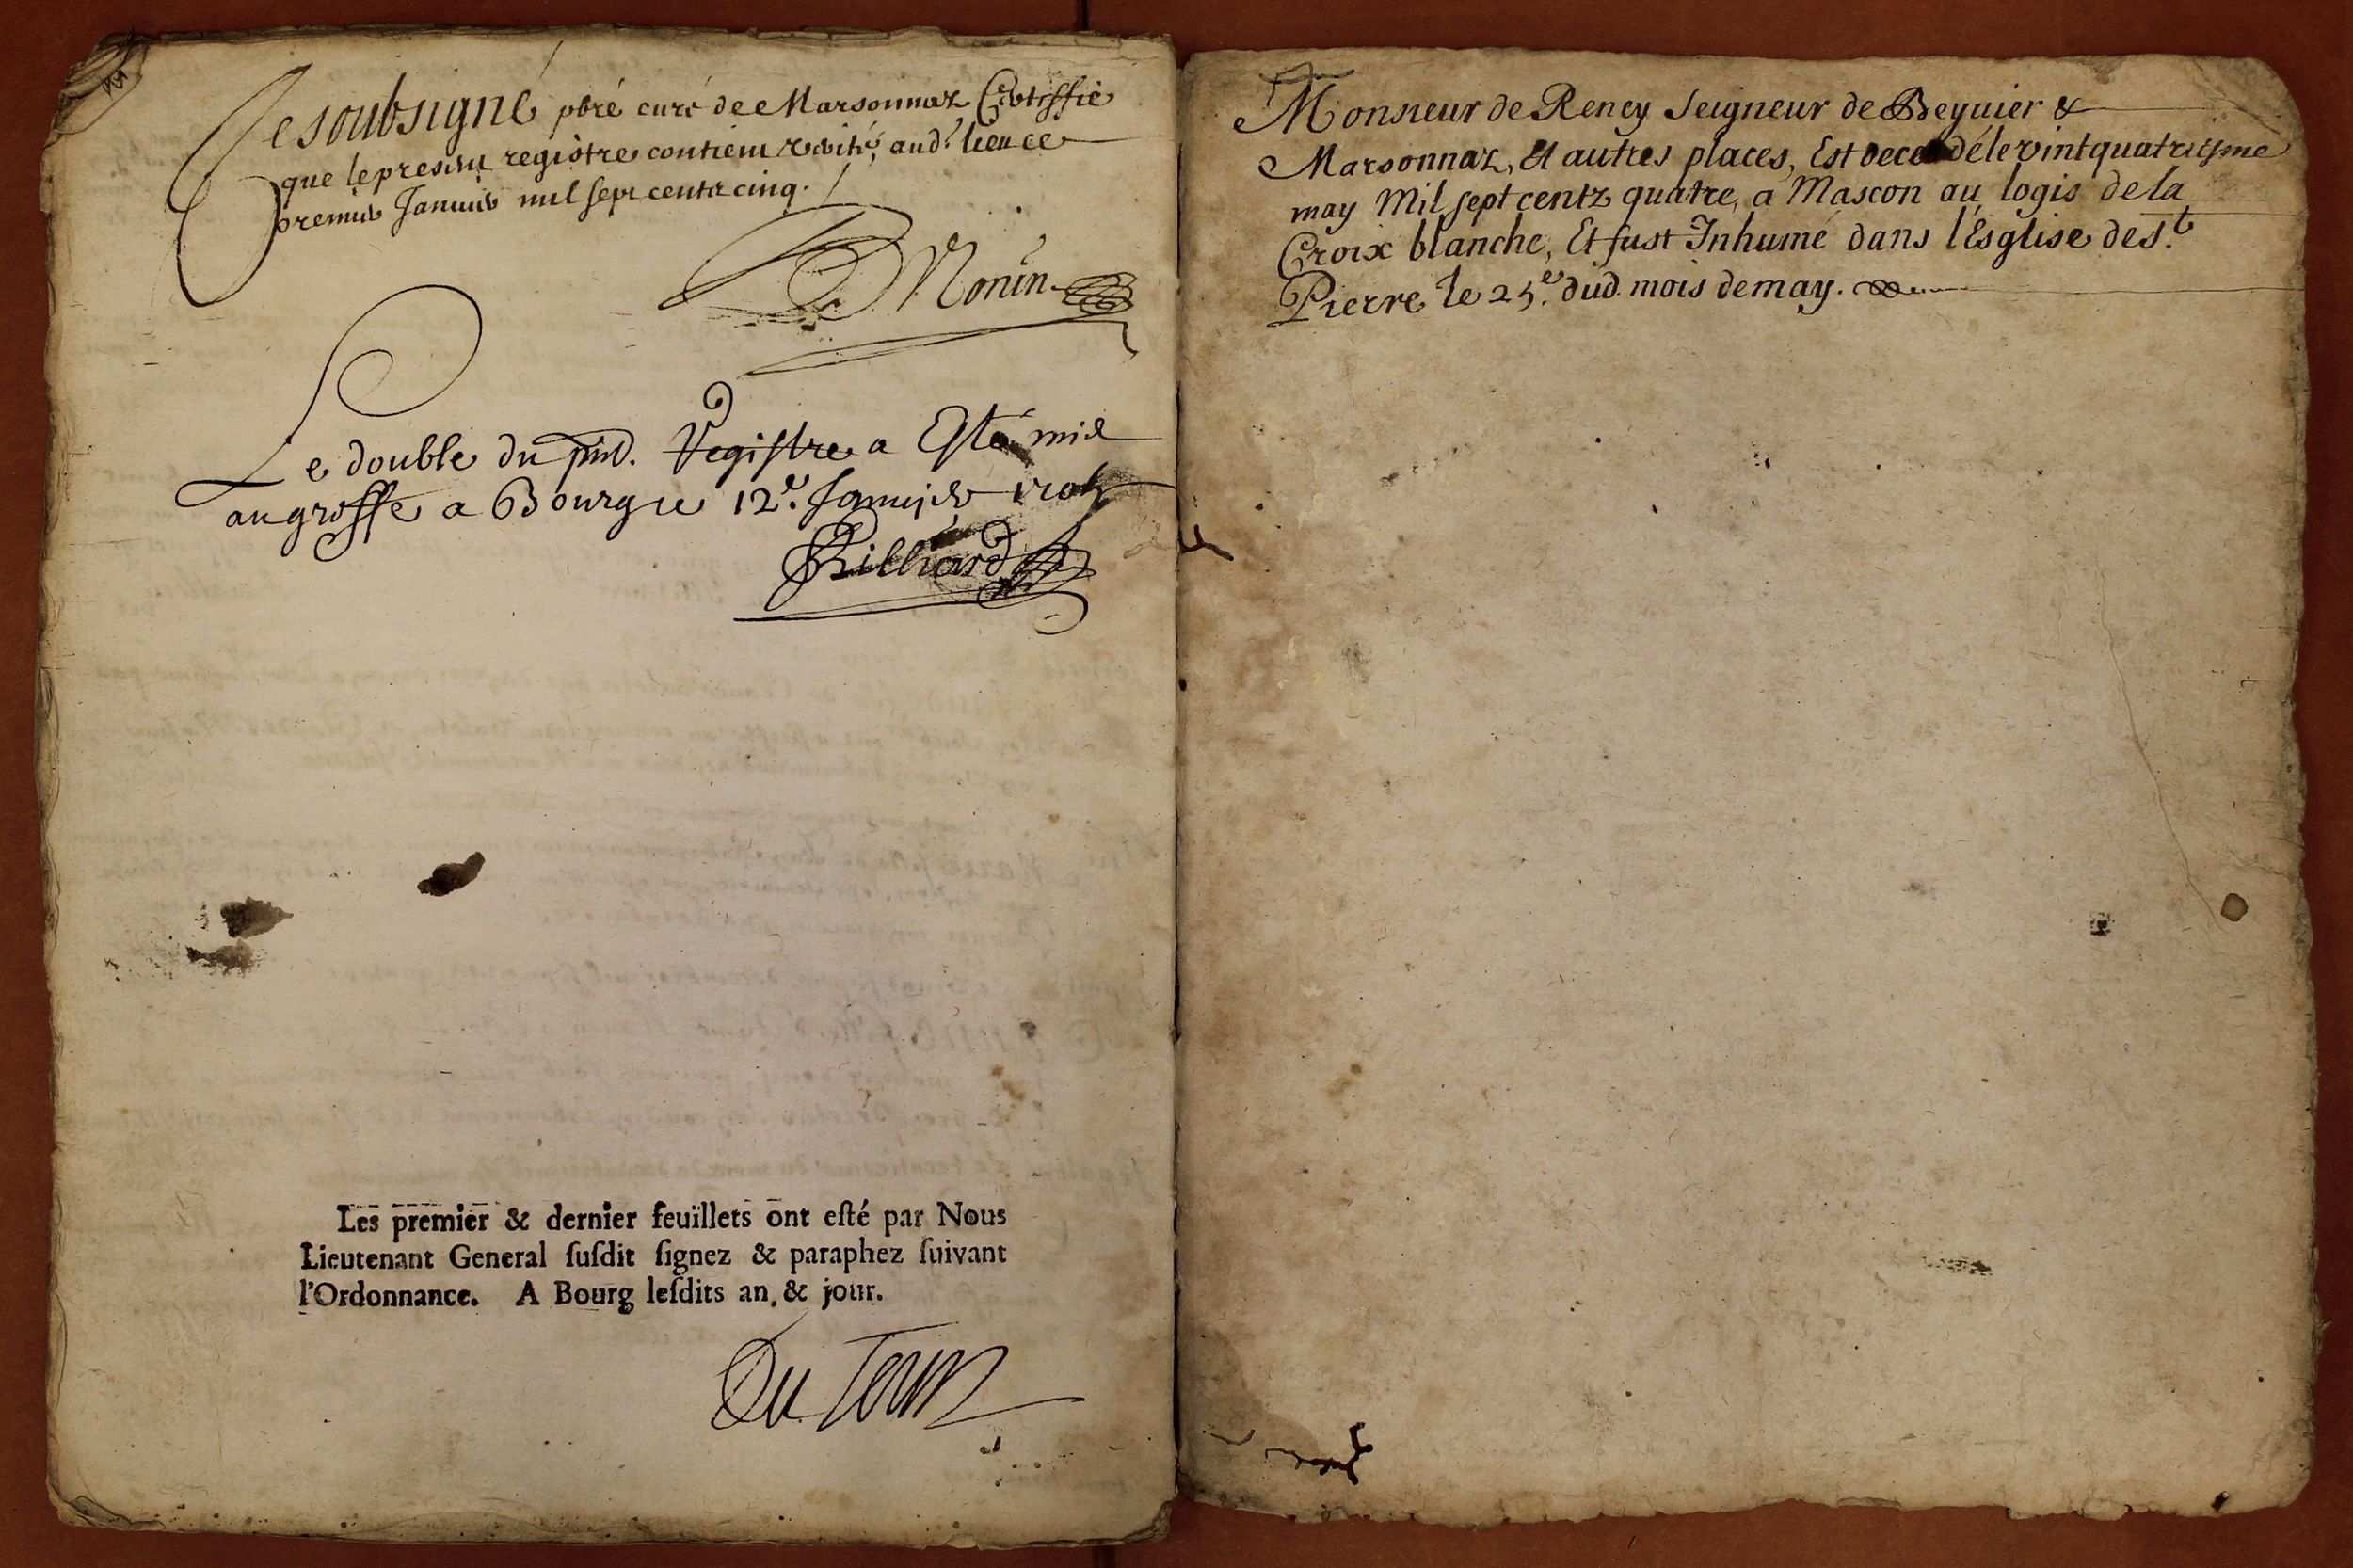 Je soubsigné pbre curé de Marsonnaz Certiffie
que le present registre contient verité, aud.t lieu ce
premier Janvier mil sept centz cinq.
Monin
Le double du pnt. Registre a Esté mis
au greffe a Bourg le 12.e Janvier 1705
Billiard
Les premier & dernier feuillets ont eſté par Nous
Lieutenant General ſuſdit ſignez & paraphez ſuivant
l'Ordonnance. A Bourg leſdits an, & jour.
Du Tour
Monsieur de Reney Seigneur de Beyuier &
Marsonnaz, Et autres places, Est decedé le vint quatriesme
may Mil sept centz quatre, a Mascon au logis de la
Croix blanche, Et fust Inhumé dans l'Esglise de S.t
Pierre le 25.e dud. mois de may.